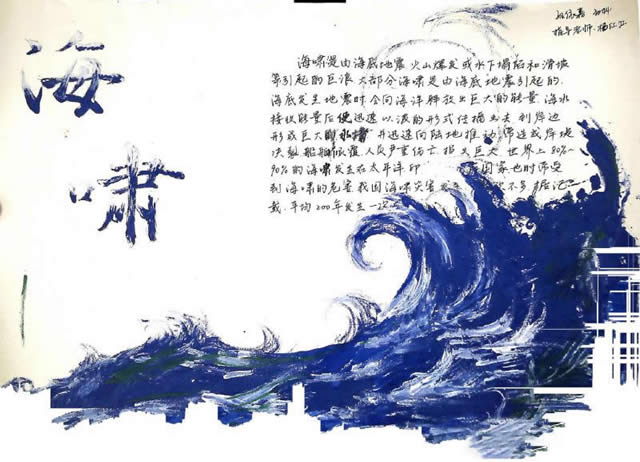 海啸
海啸是由海底地震火山爆发或水下塌陷和滑坡
等引起的巨浪大部分海啸是由海底地震引起的,
海底发生地震时会向海洋释放出巨大的能量,海水
接收能量后便迅速以波的形式传播出去到岸边
形成巨大的水墙并迅速向陆地推动,
决裂船舶倾覆,人员严重伤亡 巨大 世界上80%~
90%的海啸发生在太平洋印 国家也时常受
到海啸的危害我国海啸灾害发生 不多
载,平均200年发生一次
指导老师:杨红卫